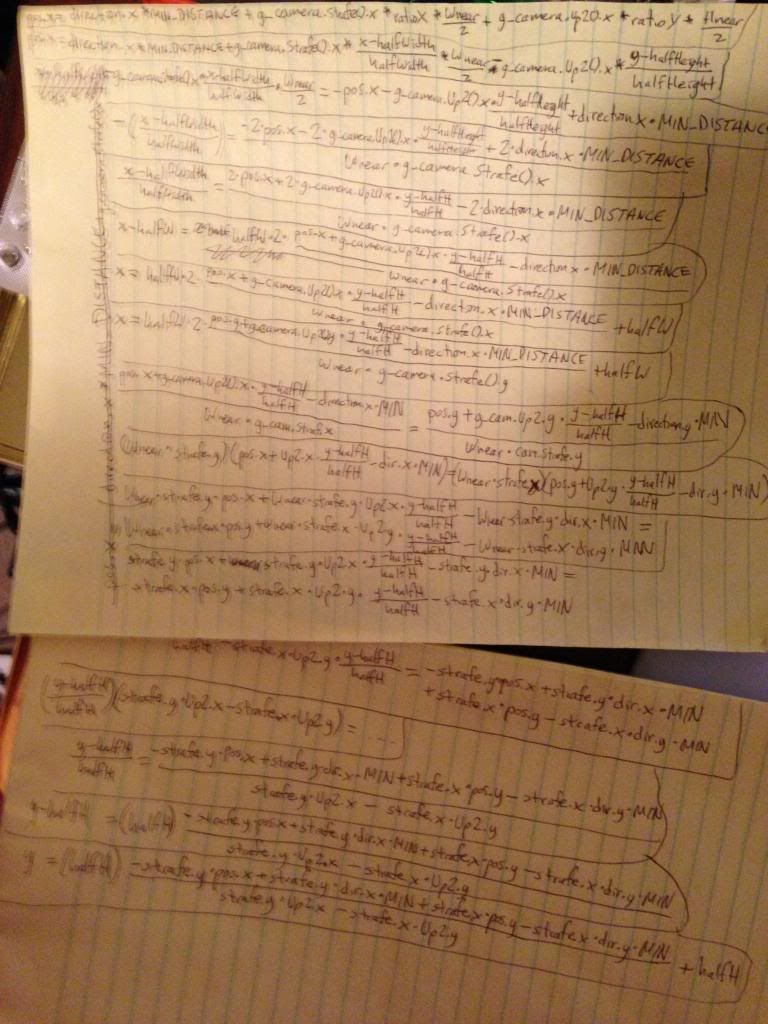 pos.x = direction.x * MIN_DISTANCE + g_camera.Strafe().x * ratioX * Wnear/2 + g_camera.Up2().x * ratioY * Hnear/2
pos.x = direction.x * MIN_DISTANCE + g_camera.Strafe().x * x-halfWidth/halfWidth * Wnear/2 - g_camera.Up2().x * y-halfHeight/halfHeight
g_camera.Strafe().x * x-halfWidth/halfWidth * Wnear/2 = -pos.x - g_camera.Up2().x * y-halfHeight/halfHeight + direction.x * MIN_DISTANCE
-(x-halfWidth/halfWidth) = -2·pos.x - 2·g_camera.Up2().x · y-halfHeight/halfHeight + 2·direction.x · MIN_DISTANCE
Wnear * g_camera.Strafe().x
x-halfWidth/halfWidth = 2·pos.x + 2·g_camera.Up2().x · y-halfH/halfH - 2·direction.x * MIN_DISTANCE
Wnear * g_camera.Strafe().x
x-halfW = halfW·2· pos.x + g_camera.Up2().x · y-halfH/halfH - direction.x · MIN_DISTANCE
Wnear * g_camera.Strafe().x
x = halfW·2· pos.x + g_camera.Up2().x · y-halfH/halfH - direction.x · MIN_DISTANCE + halfW
Wnear · g_camera.Strafe().x
x = halfW·2· pos.y + g_camera.Up2().y · y-halfH/halfH - direction.y · MIN_DISTANCE + halfW
Wnear · g_camera.Strafe().y
pos.x + g_camera.Up2().x · y-halfH/halfH - direction.x · MIN = pos.y + g_cam.Up2.y · y-halfH/halfH - direction.y · MIN
Wnear * g_cam.Strafe.x Wnear · cam.Strafe.y
(Wnear · strafe.y)(pos.x + Up2.x · y-halfH/halfH - dir.x · MIN) = (Wnear · strafe.x)(pos.y + Up2.y · y-halfH/halfH - dir.y · MIN)
Wnear · strafe.y · pos.x + Wnear · strafe.y · Up2.x · y-halfH/halfH - Wnear · strafe.y · dir.x · MIN =
Wnear · strafe.x · pos.y + Wnear · strafe.x · Up2.y · y-halfH/halfH - Wnear · strafe.x · dir.y · MIN
strafe.y · pos.x + strafe.y · Up2.x · y-halfH/halfH - strafe.y · dir.x · MIN =
strafe.x · pos.y + strafe.x · Up2.y · y-halfH/halfH - strafe.x · dir.y · MIN
halfH - strafe.x · Up2.y · y-halfH/halfH = -strafe.y · pos.x + strafe.y · dir.x · MIN
+ strafe.x · pos.y - strafe.x · dir.y · MIN
(y-halfH/halfH)(strafe.y · Up2.x - strafe.x · Up2.y) = ...
y-halfH/halfH = -strafe.y · pos.x + strafe.y · dir.x · MIN + strafe.x · pos.y - strafe.x · dir.y · MIN
strafe.y · Up2.x - strafe.x · Up2.y
y-halfH = (halfH) -strafe.y · pos.x + strafe.y · dir.x · MIN + strafe.x · pos.y - strafe.x · dir.y · MIN
strafe.y · Up2.x - strafe.x · Up2.y
y = (halfH) -strafe.y · pos.x + strafe.y · dir.x · MIN + strafe.x · pos.y - strafe.x · dir.y · MIN + halfH
strafe.y · Up2.x - strafe.x · Up2.y